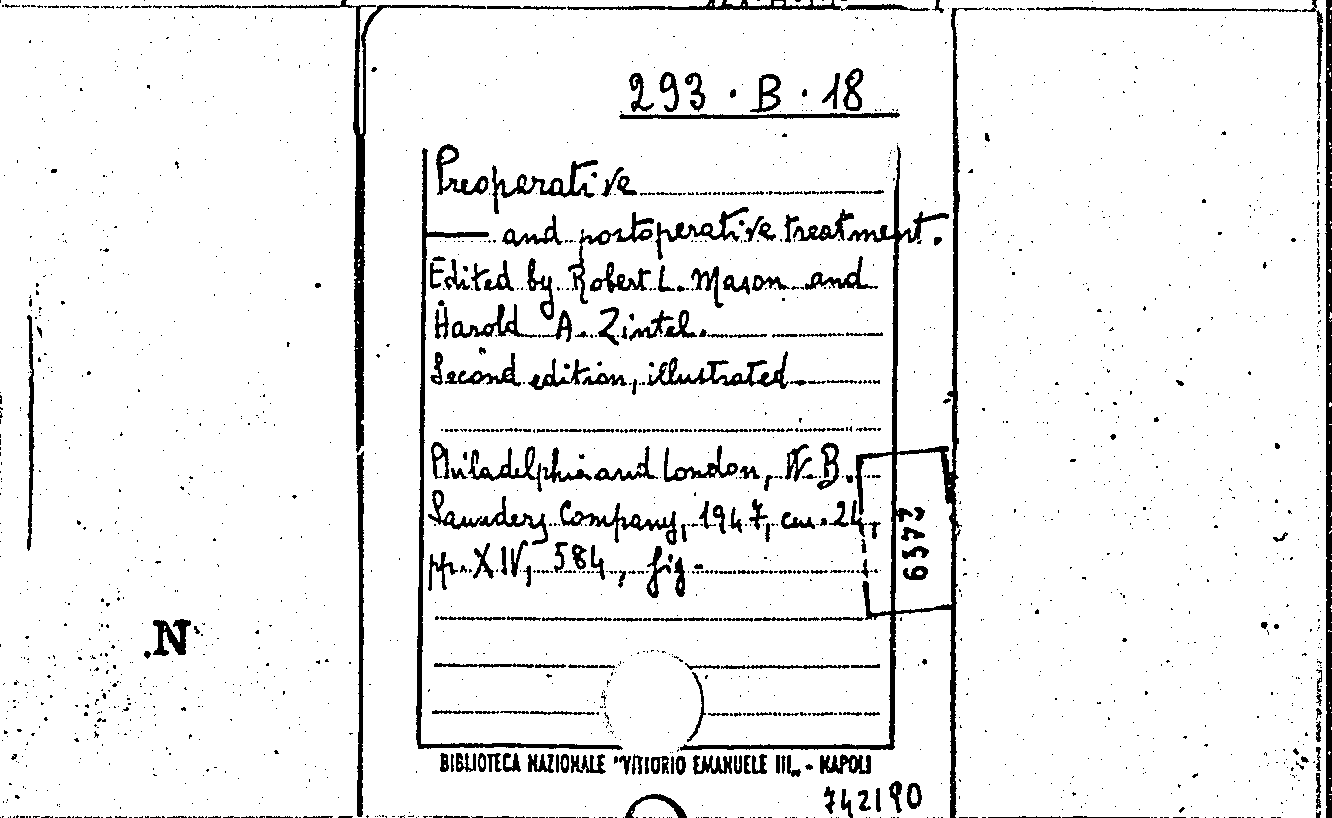 293 · B · 18
Preoperative
— and postoperative treatment.
Edited by Robert L. Mason and
Harold A. Zintel.
Second edition, illustrated.
Philadelphia and London, W. B.
Saunders Company, 1947, cm. 24,
pp. XIV, 584, fig.
N
BIBLIOTECA NAZIONALE "VITTORIO EMANUELE III„ - NAPOLI
742190